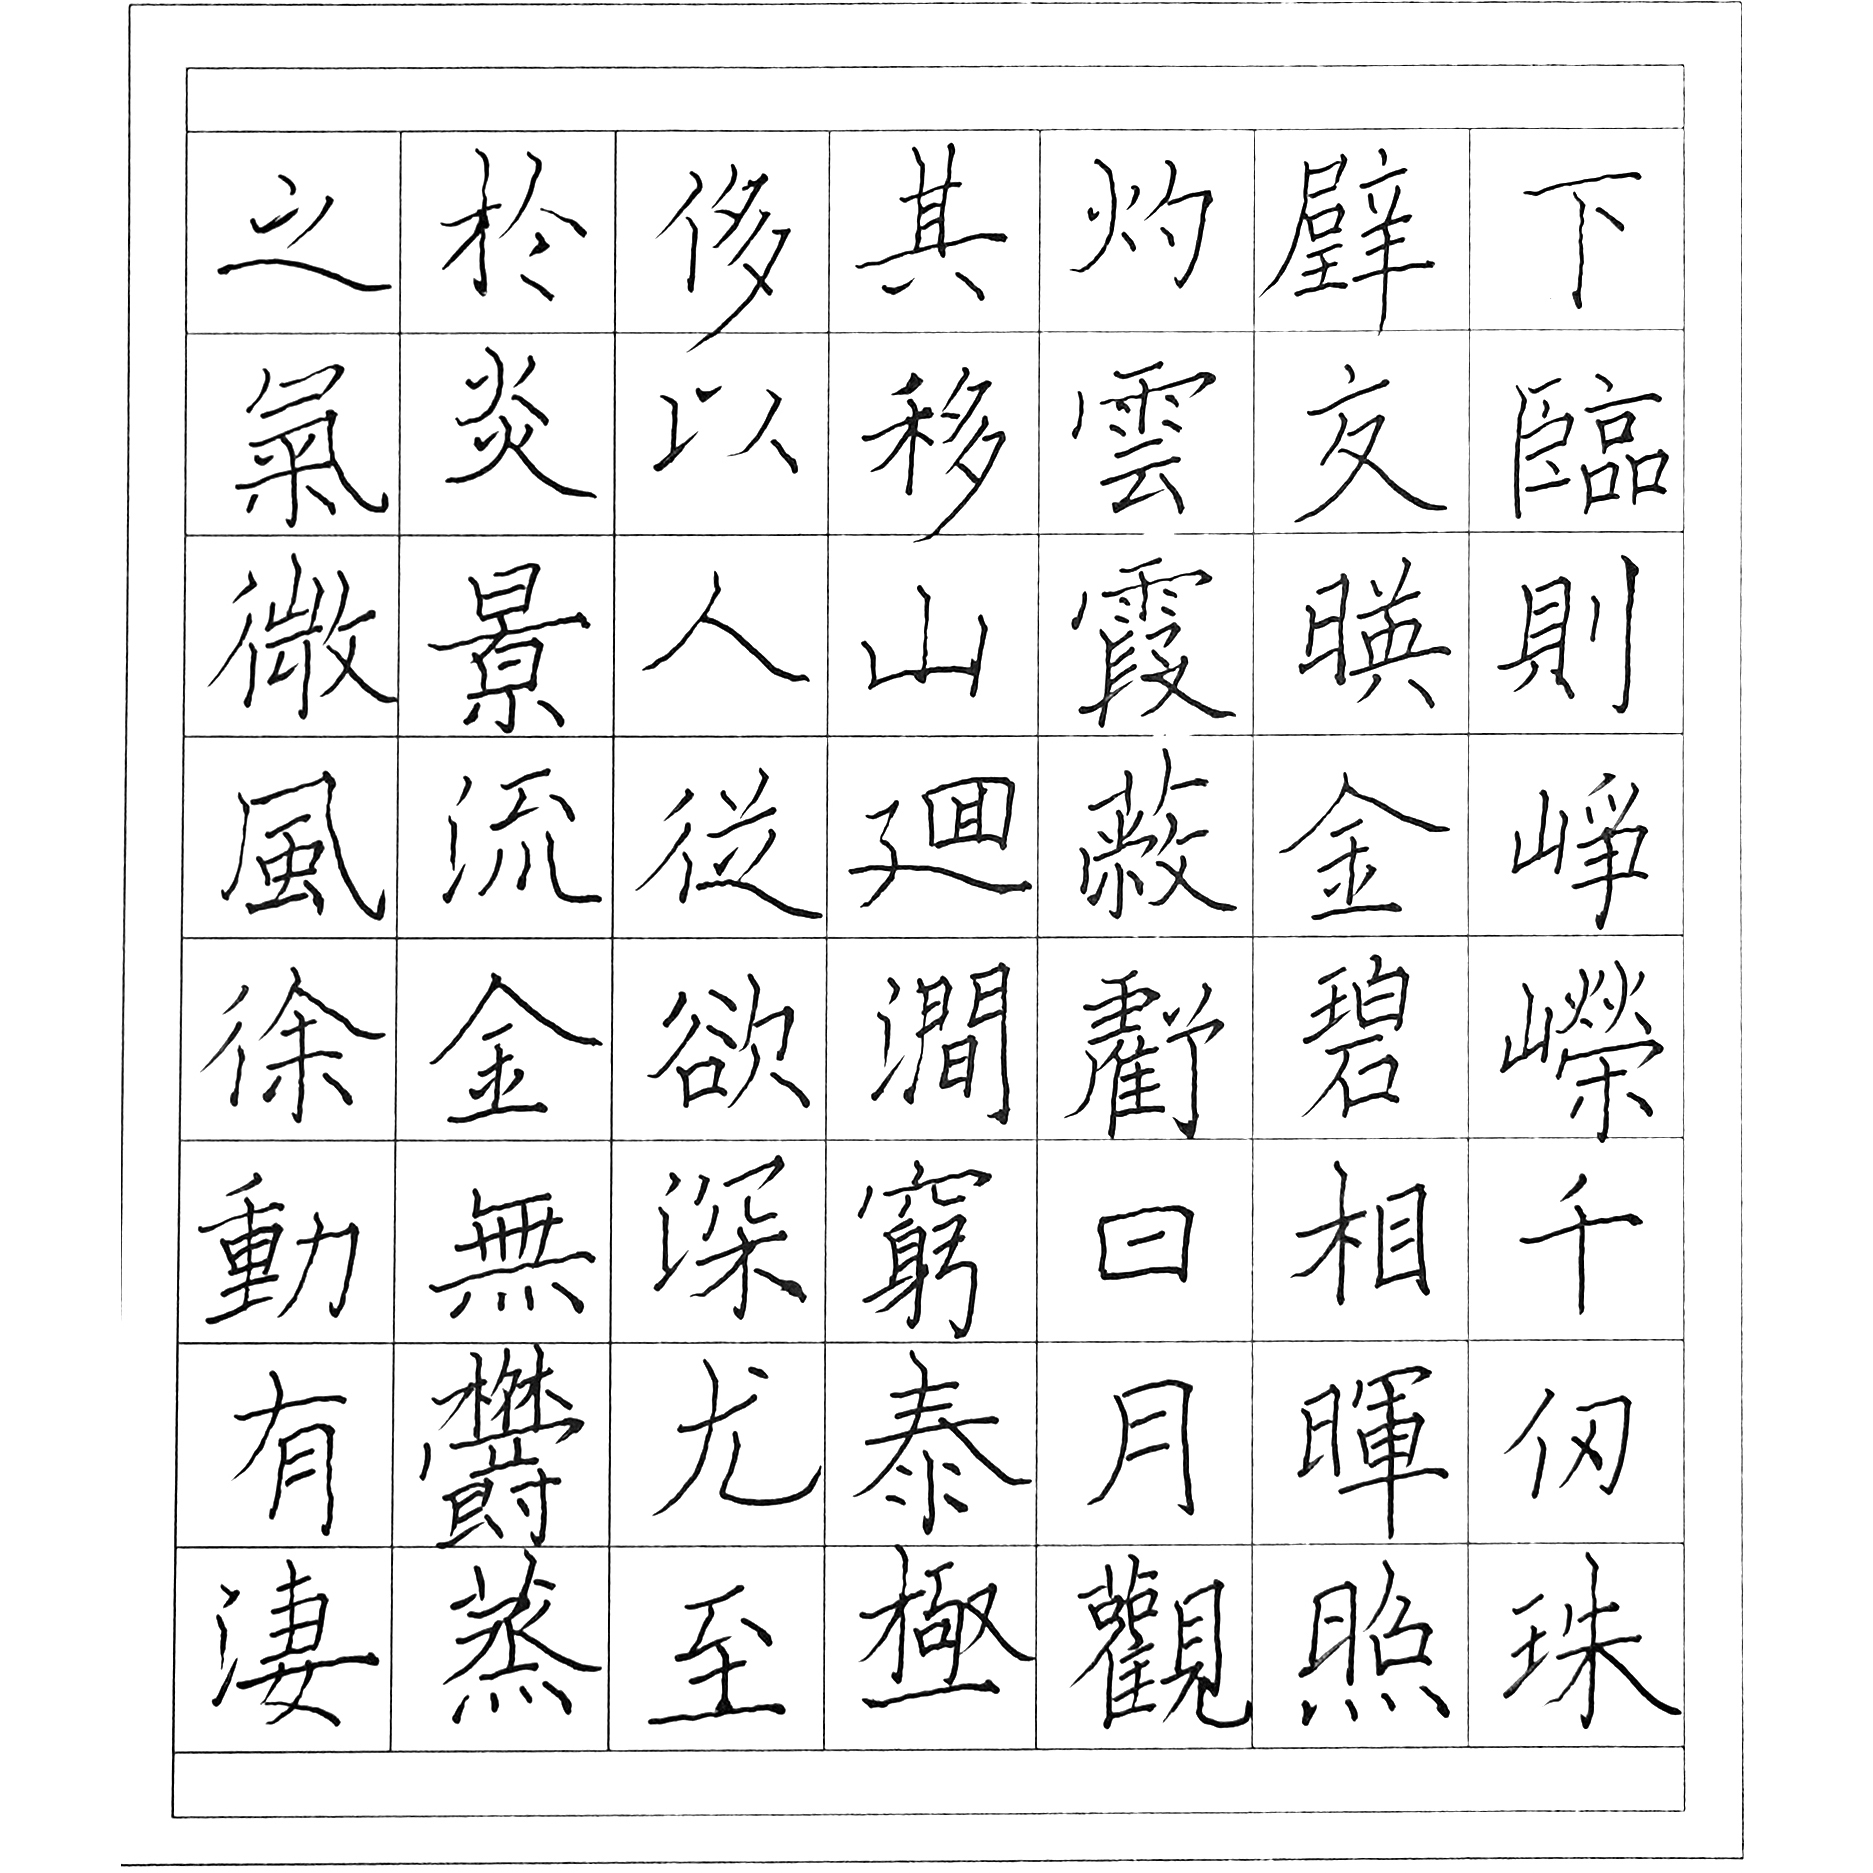 下臨則崢嶸千仞珠
壁交暎金碧相暉照
灼雲霞蔽虧日月觀
其移山廻澗窮泰極
侈以人從欲深尤至
於炎景流金無鬱蒸
之氣微風徐動有淒